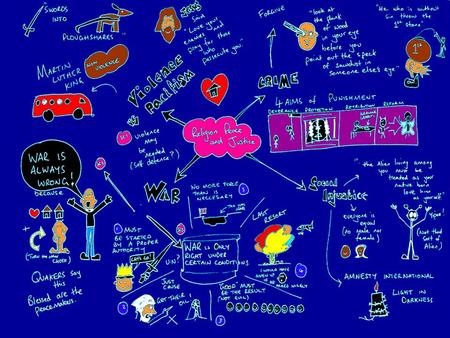 SWORDS
INTO
PLOUGHSHARES
MARTIN
LUTHER
KING
NON
VIOLENCE
JESUS
said
"Love your
enemies
pray for
those who
persecute
you"
Violence
Pacifism
FORGIVE
"look at
the plank
of wood
in your eye
before you
point out the speck
of sawdust in
someone else's eye"
"He who is without
sin throw the
1st stone"
1st
CRIME
4 AIMS OF PUNISHMENT
DETERRENCE
PROTECTION
RETRIBUTION
REFORM
Religion Peace
and Justice
Violence
may
be
needed?
(self defence?)
WAR IS
ALWAYS
WRONG!
because
(Turn the other
cheek)
QUAKERS SAY
this
Blessed are the
peacemakers.
WAR
NO MORE FORCE
THAN IS
NECESSARY
LAST
RESORT
MUST
BE STARTED
BY A PROPER
AUTHORITY
LET'S GO!
UN?
WAR is ONLY
RIGHT UNDER
CERTAIN CONDITIONS
JUST
CAUSE
GET THEIR
OIL
GOOD MUST
BE THE RESULT
(NOT EVIL)
1
2
3
4
5
Social
Injustice
"the Alien living among
you must be
treated as your
native born
love him
as yourself"
everyone is
equal
(no male nor
female)
(Not that
sort of
Alien)
AMNESTY INTERNATIONAL
LIGHT IN
DARKNESS